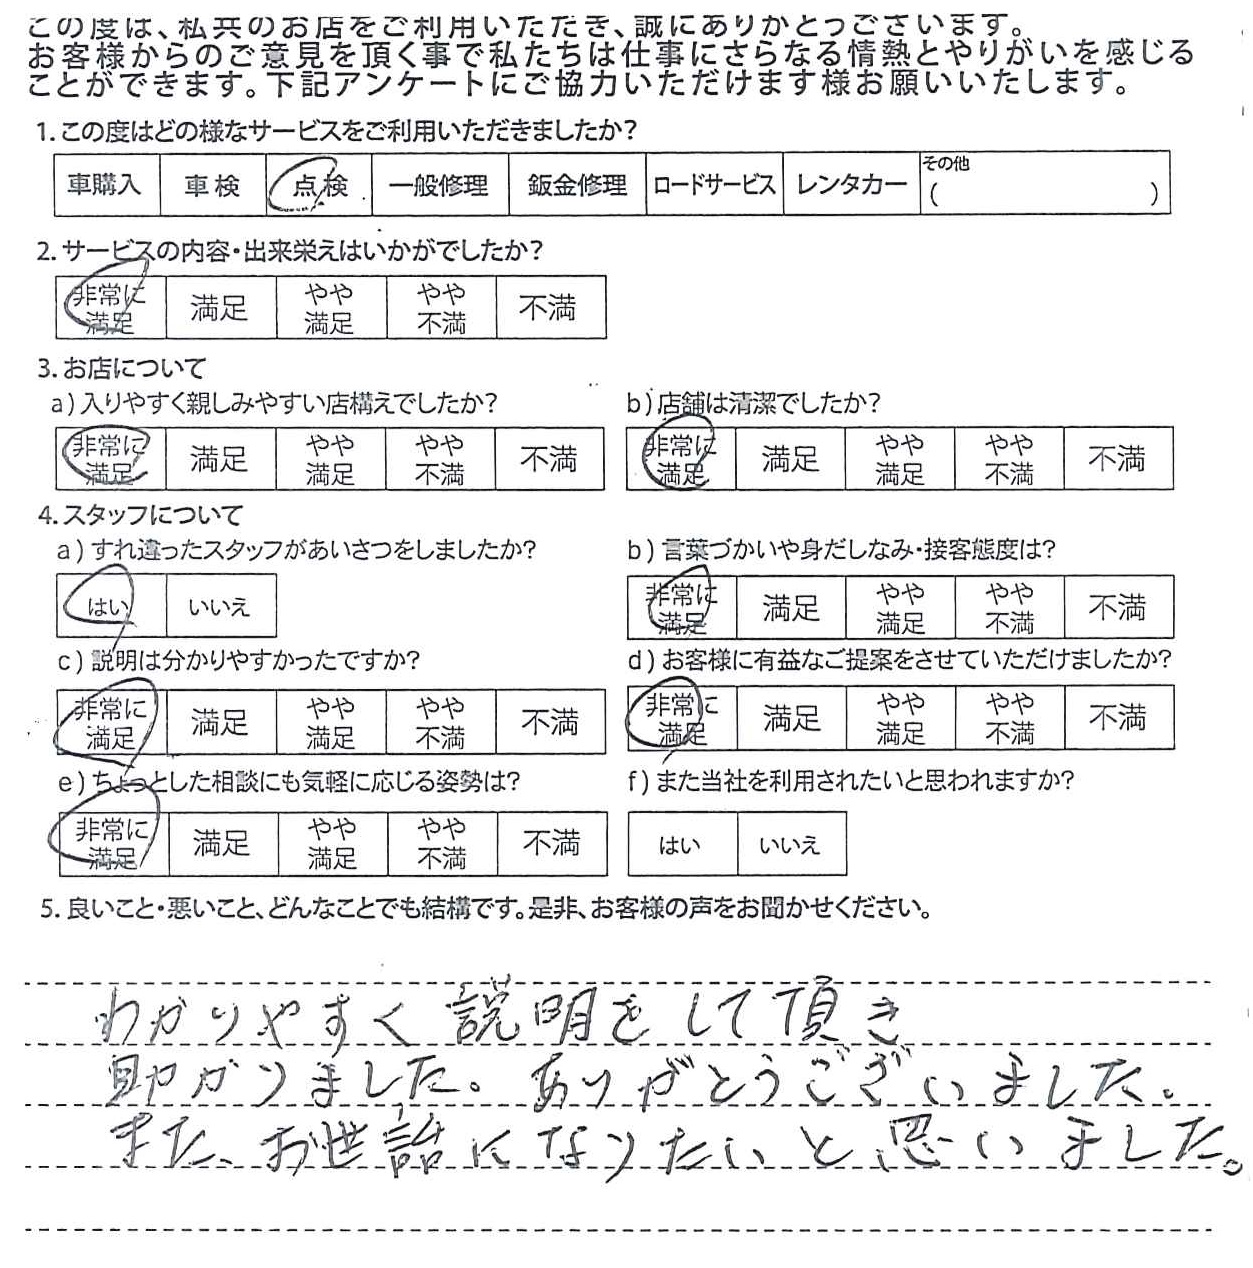 この度は、私共のお店をご利用いただき、誠にありがとうございます。
お客様からのご意見を頂く事で私たちは仕事にさらなる情熱とやりがいを感じる
ことができます。下記アンケートにご協力いただけます様お願いいたします。
1.この度はどの様なサービスをご利用いただきましたか?
車購入 車検 点検 一般修理 鈑金修理 ロードサービス レンタカー その他
( )
2.サービスの内容・出来栄えはいかがでしたか?
非常に満足 満足 やや満足 やや不満 不満
3.お店について
a)入りやすく親しみやすい店構えでしたか? b)店舗は清潔でしたか?
非常に満足 満足 やや満足 やや不満 不満 非常に満足 満足 やや満足 やや不満 不満
4.スタッフについて
a)すれ違ったスタッフがあいさつをしましたか? b)言葉づかいや身だしなみ・接客態度は?
はい いいえ 非常に満足 満足 やや満足 やや不満 不満
c)説明は分かりやすかったですか? d)お客様に有益なご提案をさせていただけましたか?
非常に満足 満足 やや満足 やや不満 不満 非常に満足 満足 やや満足 やや不満 不満
e)ちょっとした相談にも気軽に応じる姿勢は? f)また当社を利用されたいと思われますか?
非常に満足 満足 やや満足 やや不満 不満 はい いいえ
5.良いこと・悪いこと、どんなことでも結構です。是非、お客様の声をお聞かせください。
わかりやすく説明をして頂き
助かりました。ありがとうございました。
また、お世話になりたいと思いました。